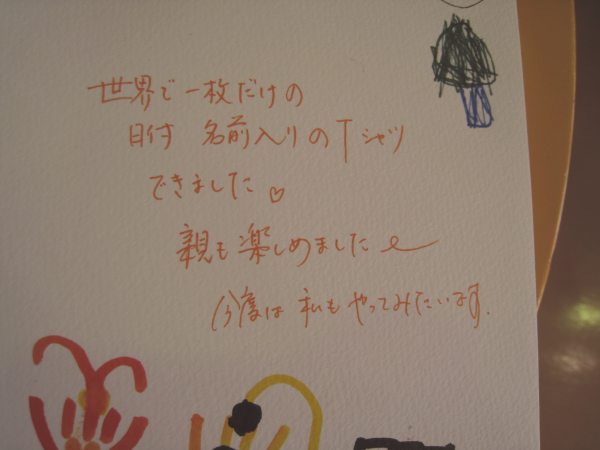 世界で一枚だけの
日付 名前入りのTシャツ
できました♡
親も楽しめました
今度は 私もやってみたいます。